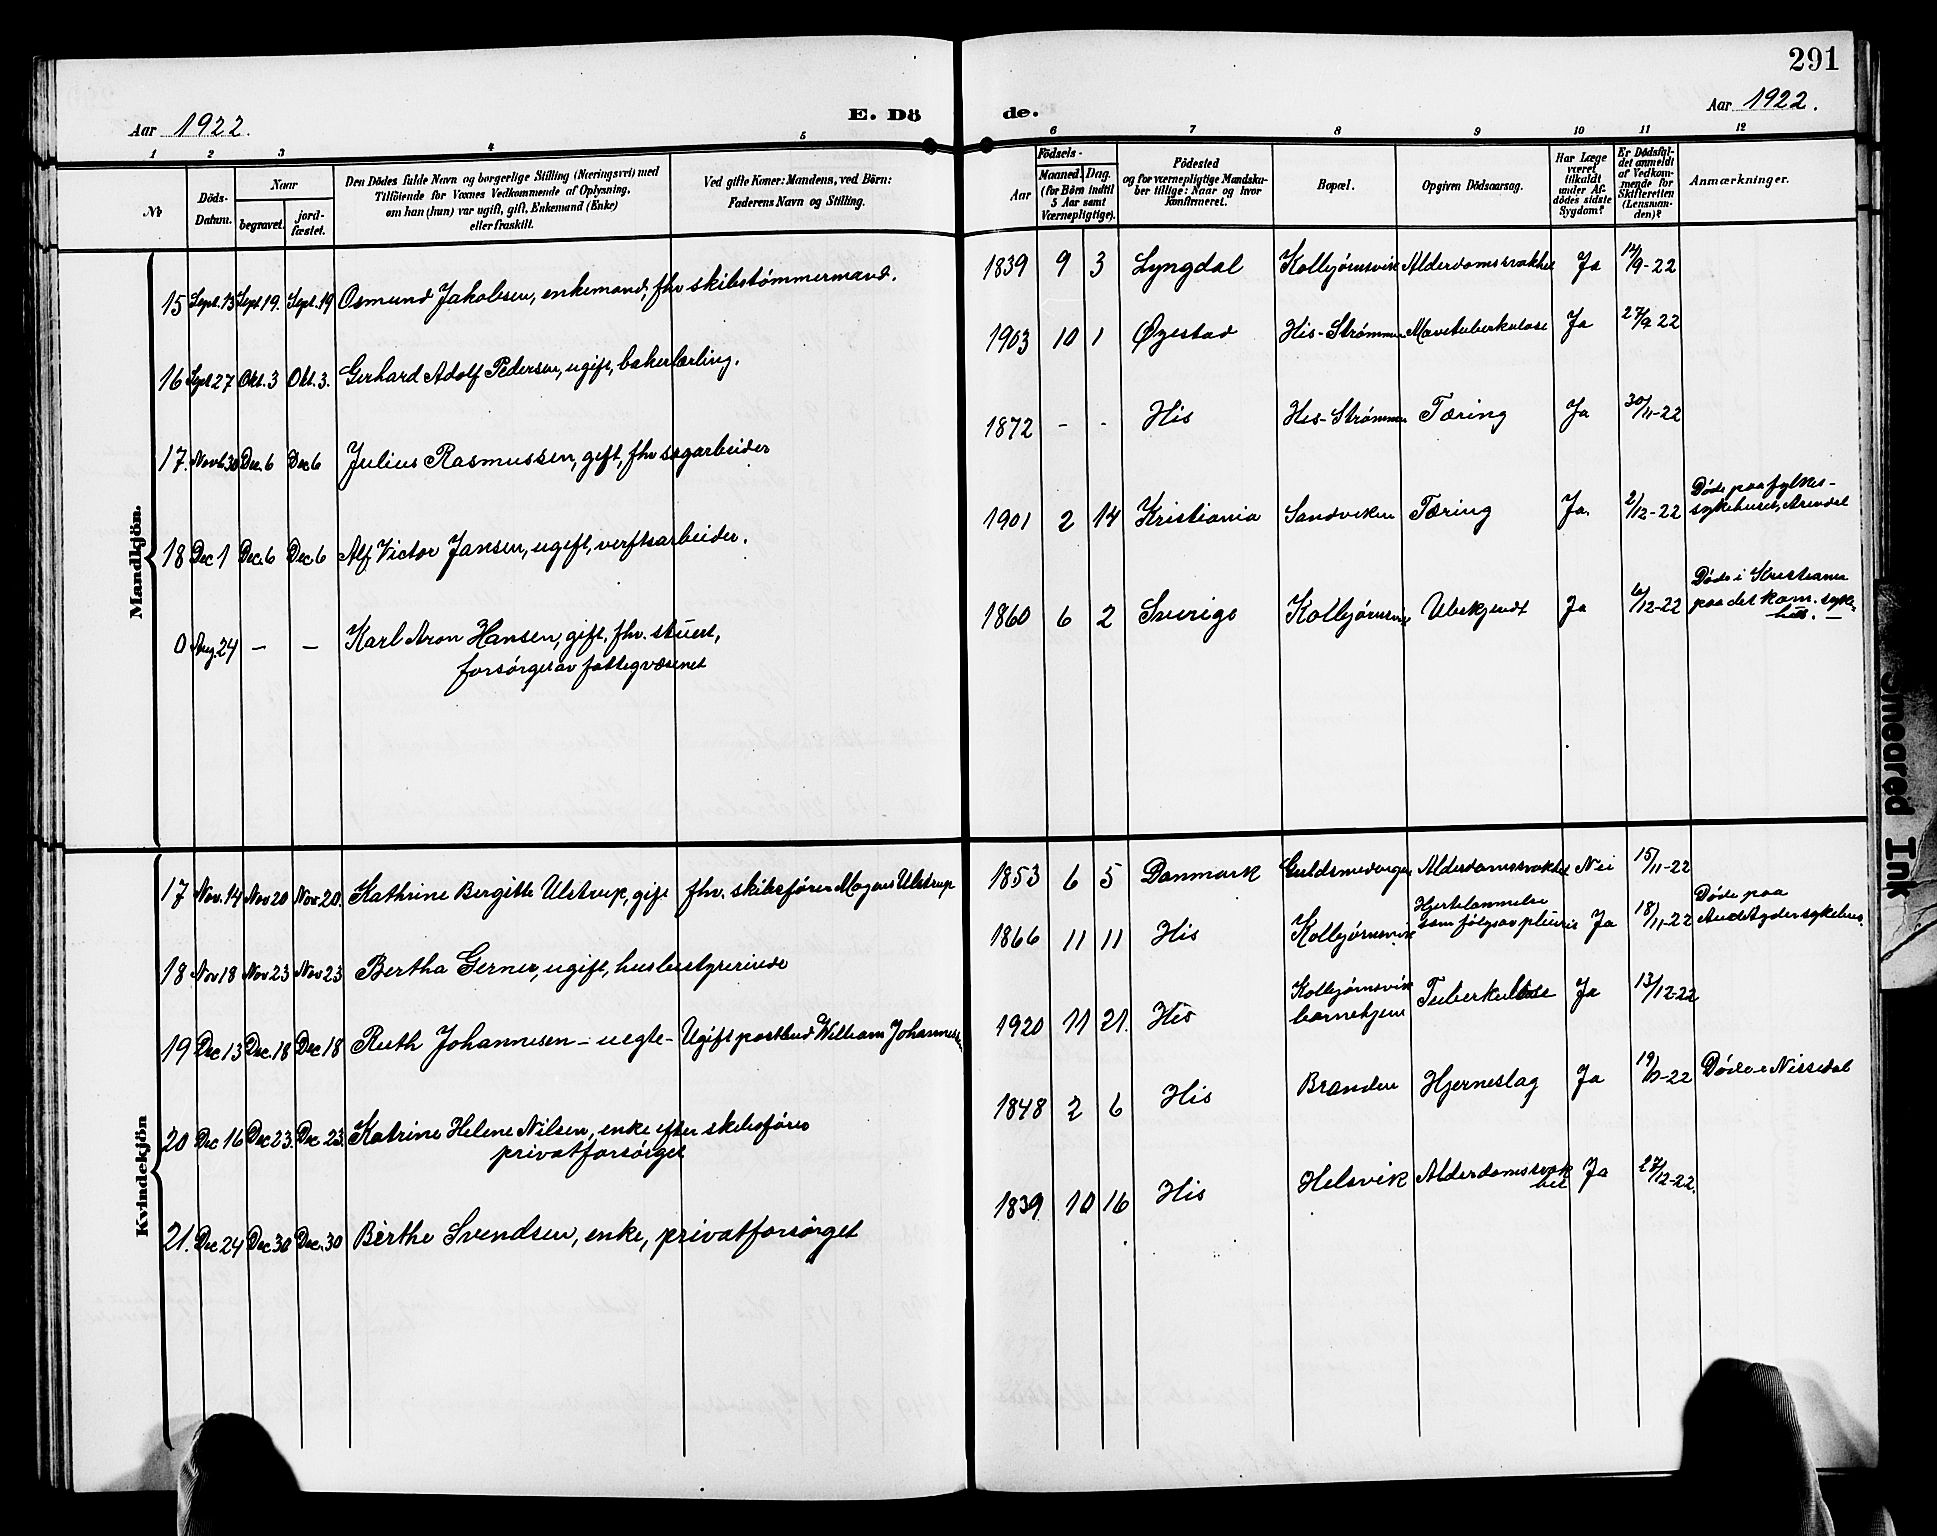 291
Aar 1922.
E. Dö
de.
Aar 1922.
1 2 3 4 5
6 7 8 9 10 11 12
No
Döds-
Datum.
Naar
begravet.
jord-
fæstet.
Den Dödes fulde Navn og borgerlige Stilling (Næringsvei) med
Tilföiende for Voxnes Vedkommende af Oplysning,
om han (hun) var ugift, gift, Enkemand (Enke)
eller fraskilt.
Ved gifte Koner: Mandens, ved Börn:
Faderens Navn og Stilling.
Födsels-
Aar
Maaned.
Dag.
(for Börn indtil
5 Aar samt
Værnepligtige).
Födested
og for værnepligtige Mandskaber
tillige: Naar og hvor
konfirmeret.
Bopæl.
Opgiven Dödsaarsag.
Har Læge
været
tilkaldt
under Af-
dödes sidste
Sygdom?
Er Dødsfal-
det anmeldt
af Vedkom-
mende for
Skifteretten
(Lensman-
den)?
Anmærkninger.
Mandkjön.
15 Sept. 13 Sept. 19. Sept. 19 Osmund Jakobsen, enkemand, fhv skibstømmermand. 1839 9 3 Lyngdal Kolbjørnsvik Alderdomssvakhet Ja 14/9-22
16 Sept 27 Okt. 3 Okt. 3. Gerhard Adolf Pedersen, ugift, bakerlærling. 1903 10 1 Øyestad His-Strømmen Mavetuberkulose Ja 27/9 22
17. Novb 30 Dec. 6 Dec 6 Julius Rasmussen, gift, fhv sagarbeider 1872 - - His His-Strømmen Tæring Ja 30/11-22
18 Dec 1 Dec. 6 Dec 6 Alf Victor Jansen, ugift, verftsarbeider. 1901 2 14 Kristiania Sandviken Tæring Ja. 2/12-22 Døde paa fylkes-
sykehuset, Arendal
0 Aug. 24 – – Karl Aron Hansen, gift, fhv. stuert,
forsørget av fattigvæsenet
1860 6 2 Sverige Kolbjørnsvik Ubekjendt Ja 6/12-22 Døde i Kristiania
paa det kom. syke-
hus. –
Kvindekjön
17 Nov. 14 Nov 20 Nov. 20. Kathrine Bergitte Ulstrup, gift fhv. skibsfører Mogens Ulstrup 1853 6 5 Danmark Guldsmedengen Alderdomssvakhet Nei 15/11-22
18 Nov 18 Nov 23 Nov 23 Bertha Gerner, ugift, husbestyrerinde 1866 11 11 His Kolbjørnsvik Hjertelammelse
som følge av pleurit Ja 18/11-22 Døde paa
Aust Agder sykehus.
19 Dec 13 Dec. 18 Dec 18 Ruth Johannesen – uegte – Ugift postbud William Johannesen 1920 11 21. His Kolbjørnsvik
barnehjem Tuberkulose Ja 13/12-22
20 Dec 16 Dec 23. Dec 23. Katrine Helene Nilsen, enke efter skibsfører
privatforsørget
1848 2 6 His Branden Hjerneslag Ja Døde i Nissedal
21. Dec 24 Dec 30 Dec. 30 Birthe Svendsen, enke, privatforsørget 1839 10 16 His Helsvik Alderdomssvak
het Ja 27/12-22.
Smeared Ink